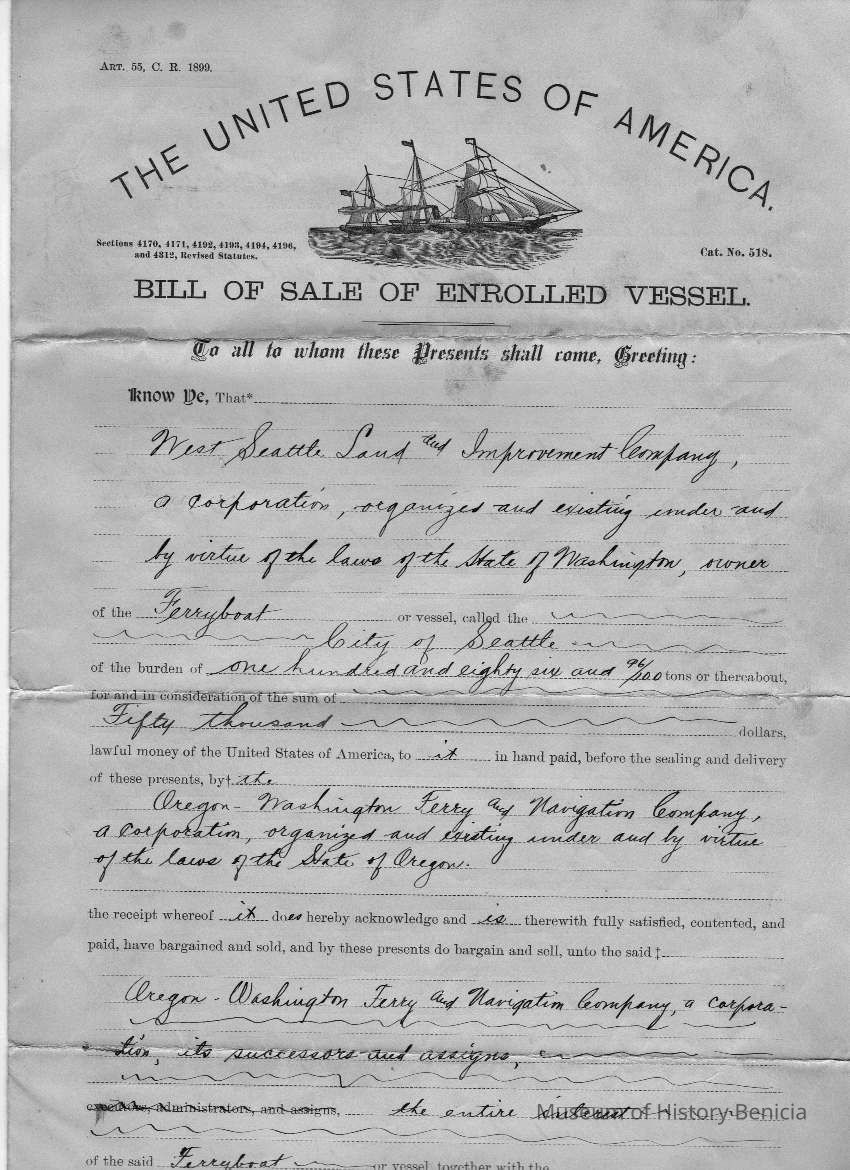 ART. 55, C. R. 1899.
THE UNITED STATES OF AMERICA.
Sections 4170, 4171, 4192, 4193, 4194, 4196,
and 4312, Revised Statutes.
Cat. No. 518.
BILL OF SALE OF ENROLLED VESSEL.
To all to whom these Presents shall come, Greeting:
Know Ye, That*
West Seattle Land and Improvement Company,
a corporation, organized and existing under and
by virtue of the laws of the State of Washington, owner
of the Ferryboat or vessel, called the
City of Seattle
of the burden of one hundred and eighty six and 96/100 tons or thereabout,
for and in consideration of the sum of
Fifty thousand dollars,
lawful money of the United States of America, to it in hand paid, before the sealing and delivery
of these presents, by† the
Oregon-Washington Ferry and Navigation Company,
a corporation, organized and existing under and by virtue
of the laws of the State of Oregon.
the receipt whereof it does hereby acknowledge and is therewith fully satisfied, contented, and
paid, have bargained and sold, and by these presents do bargain and sell, unto the said ‡
Oregon-Washington Ferry and Navigation Company, a corpora-
tion, its successors and assigns,
executors, administrators, and assigns, the entire interest
Museum of History Benicia
of the said Ferryboat or vessel, together with the